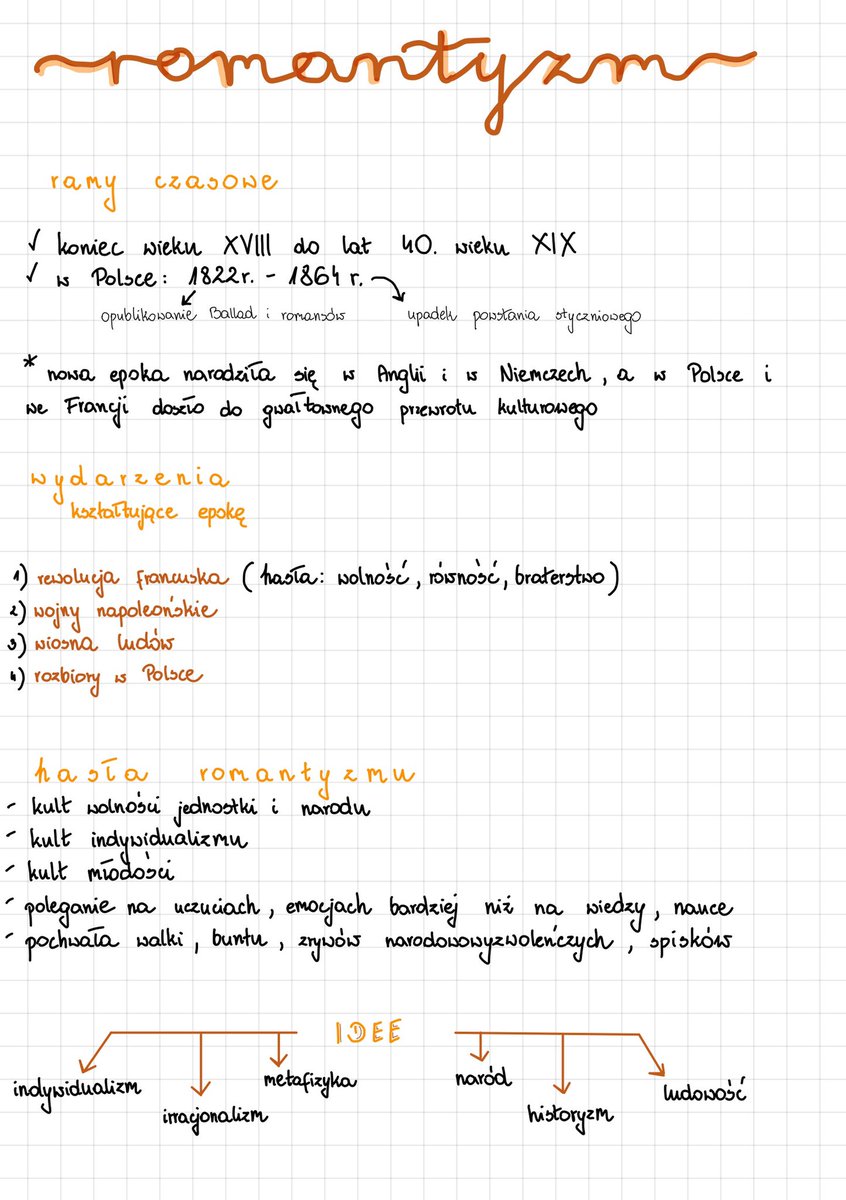 romantyzm
ramy czasowe
✓ koniec wieku XVIII do lat 40. wieku XIX
✓ w Polsce: 1822r. - 1864 r.
opublikowanie Ballad i romansów
upadek powstania styczniowego
* nowa epoka narodziła się w Anglii i w Niemczech, a w Polsce i
we Francji doszło do gwałtownego przewrotu kulturowego
wydarzenia
kształtujące epokę
1) rewolucja francuska (hasła: wolność, równość, braterstwo)
2) wojny napoleońskie
3) wiosna ludów
4) rozbiory w Polsce
hasła romantyzmu
- kult wolności jednostki i narodu
- kult indywidualizmu
- kult młodości
- poleganie na uczuciach, emocjach bardziej niż na wiedzy, nauce
- pochwała walki, buntu, zrywów narodowowyzwoleńczych, spisków
IDEE
indywidualizm
irracjonalizm
metafizyka
naród
historyzm
ludowość